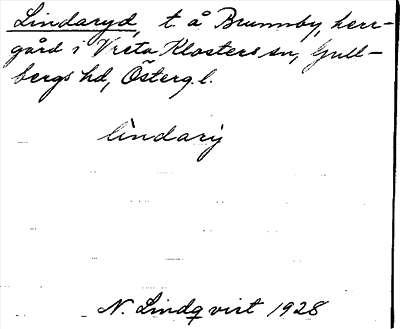 Lindaryd, t. å Brunnby, herr-
gård i Vreta Klosters sn, Gull-
bergs hd, Österg. l.
lìndarÿ
N. Lindqvist 1928